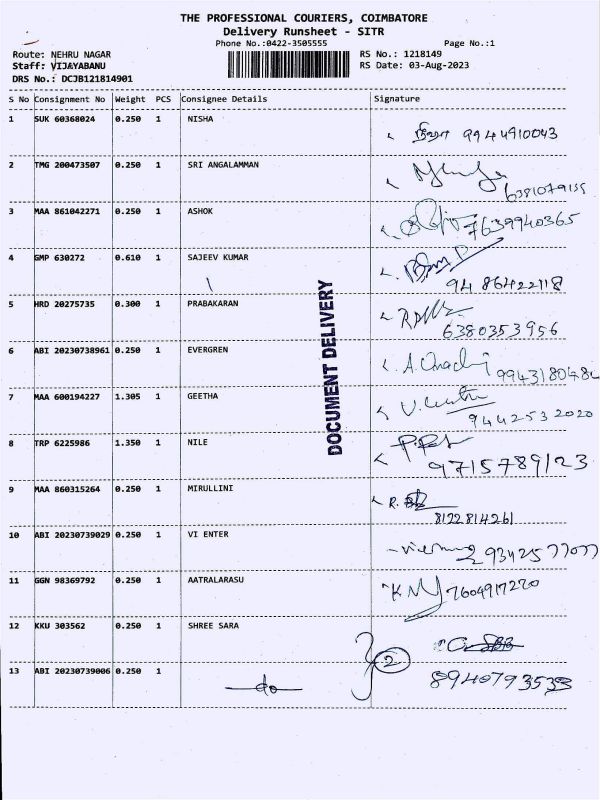 THE PROFESSIONAL COURIERS, COIMBATORE
Delivery Runsheet - SITR
Phone No.:0422-3505555 Page No.:1
Route: NEHRU NAGAR RS No.: 1218149
Staff: VIJAYABANU RS Date: 03-Aug-2023
DRS No.: DCJB121814901
S No Consignment No Weight PCS Consignee Details Signature
1 SUK 60368024 0.250 1 NISHA
நிஷா 9944910043
2 TMG 200473507 0.250 1 SRI ANGALAMMAN
6381079155
3 MAA 861042271 0.250 1 ASHOK
7639940365
4 GMP 630272 0.610 1 SAJEEV KUMAR
9486422118
5 HRD 20275735 0.300 1 PRABAKARAN
6380353956
6 ABI 20230738961 0.250 1 EVERGREN
7 MAA 600194227 1.305 1 GEETHA
9442532020
8 TRP 6225986 1.350 1 NILE
9715789123
9 MAA 860315264 0.250 1 MIRULLINI
8122814261
10 ABI 20230739029 0.250 1 VI ENTER
9342577077
11 GGN 98369792 0.250 1 AATRALARASU
7604917270
12 KKU 303562 0.250 1 SHREE SARA
2
13 ABI 20230739006 0.250 1 do
8940793533
DOCUMENT DELIVERY